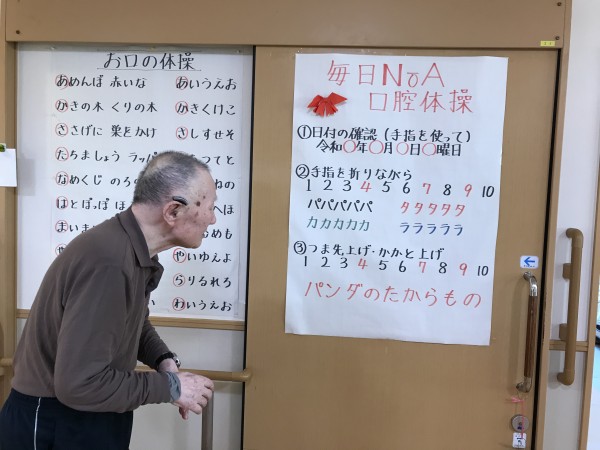 お口の体操
あめんぼ 赤いな あいうえお
かきの木 くりの木 かきくけこ
ささげに 巣をかけ さしすせそ
たちましょう ラッパ つてと
なめくじ のろ ねの
はとぽっぽ ほ へほ
まいま めも
や やいゆえよ
らりるれろ
わいうえお
毎日NoA
口腔体操
①日付の確認(手指を使って)
令和〇年〇月〇日〇曜日
②手指を折りながら
1 2 3 4 5 6 7 8 9 10
パパパパパ タタタタタ
カカカカカ ラララララ
③つま先上げ・かかと上げ
1 2 3 4 5 6 7 8 9 10
パンダのたからもの